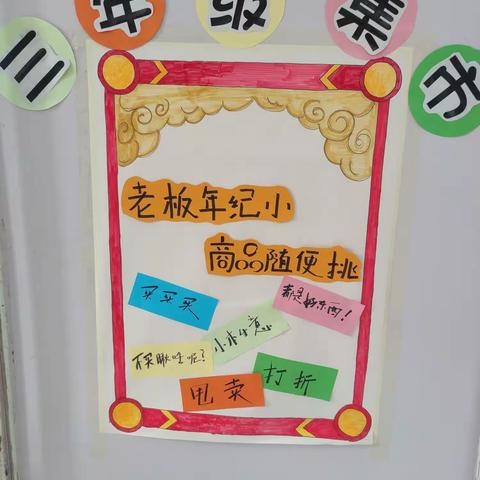 三年级集市
老板年纪小
商品随便挑
买买买
都是好东西！
小本生意
不买瞅啥呢？
甩卖
打折